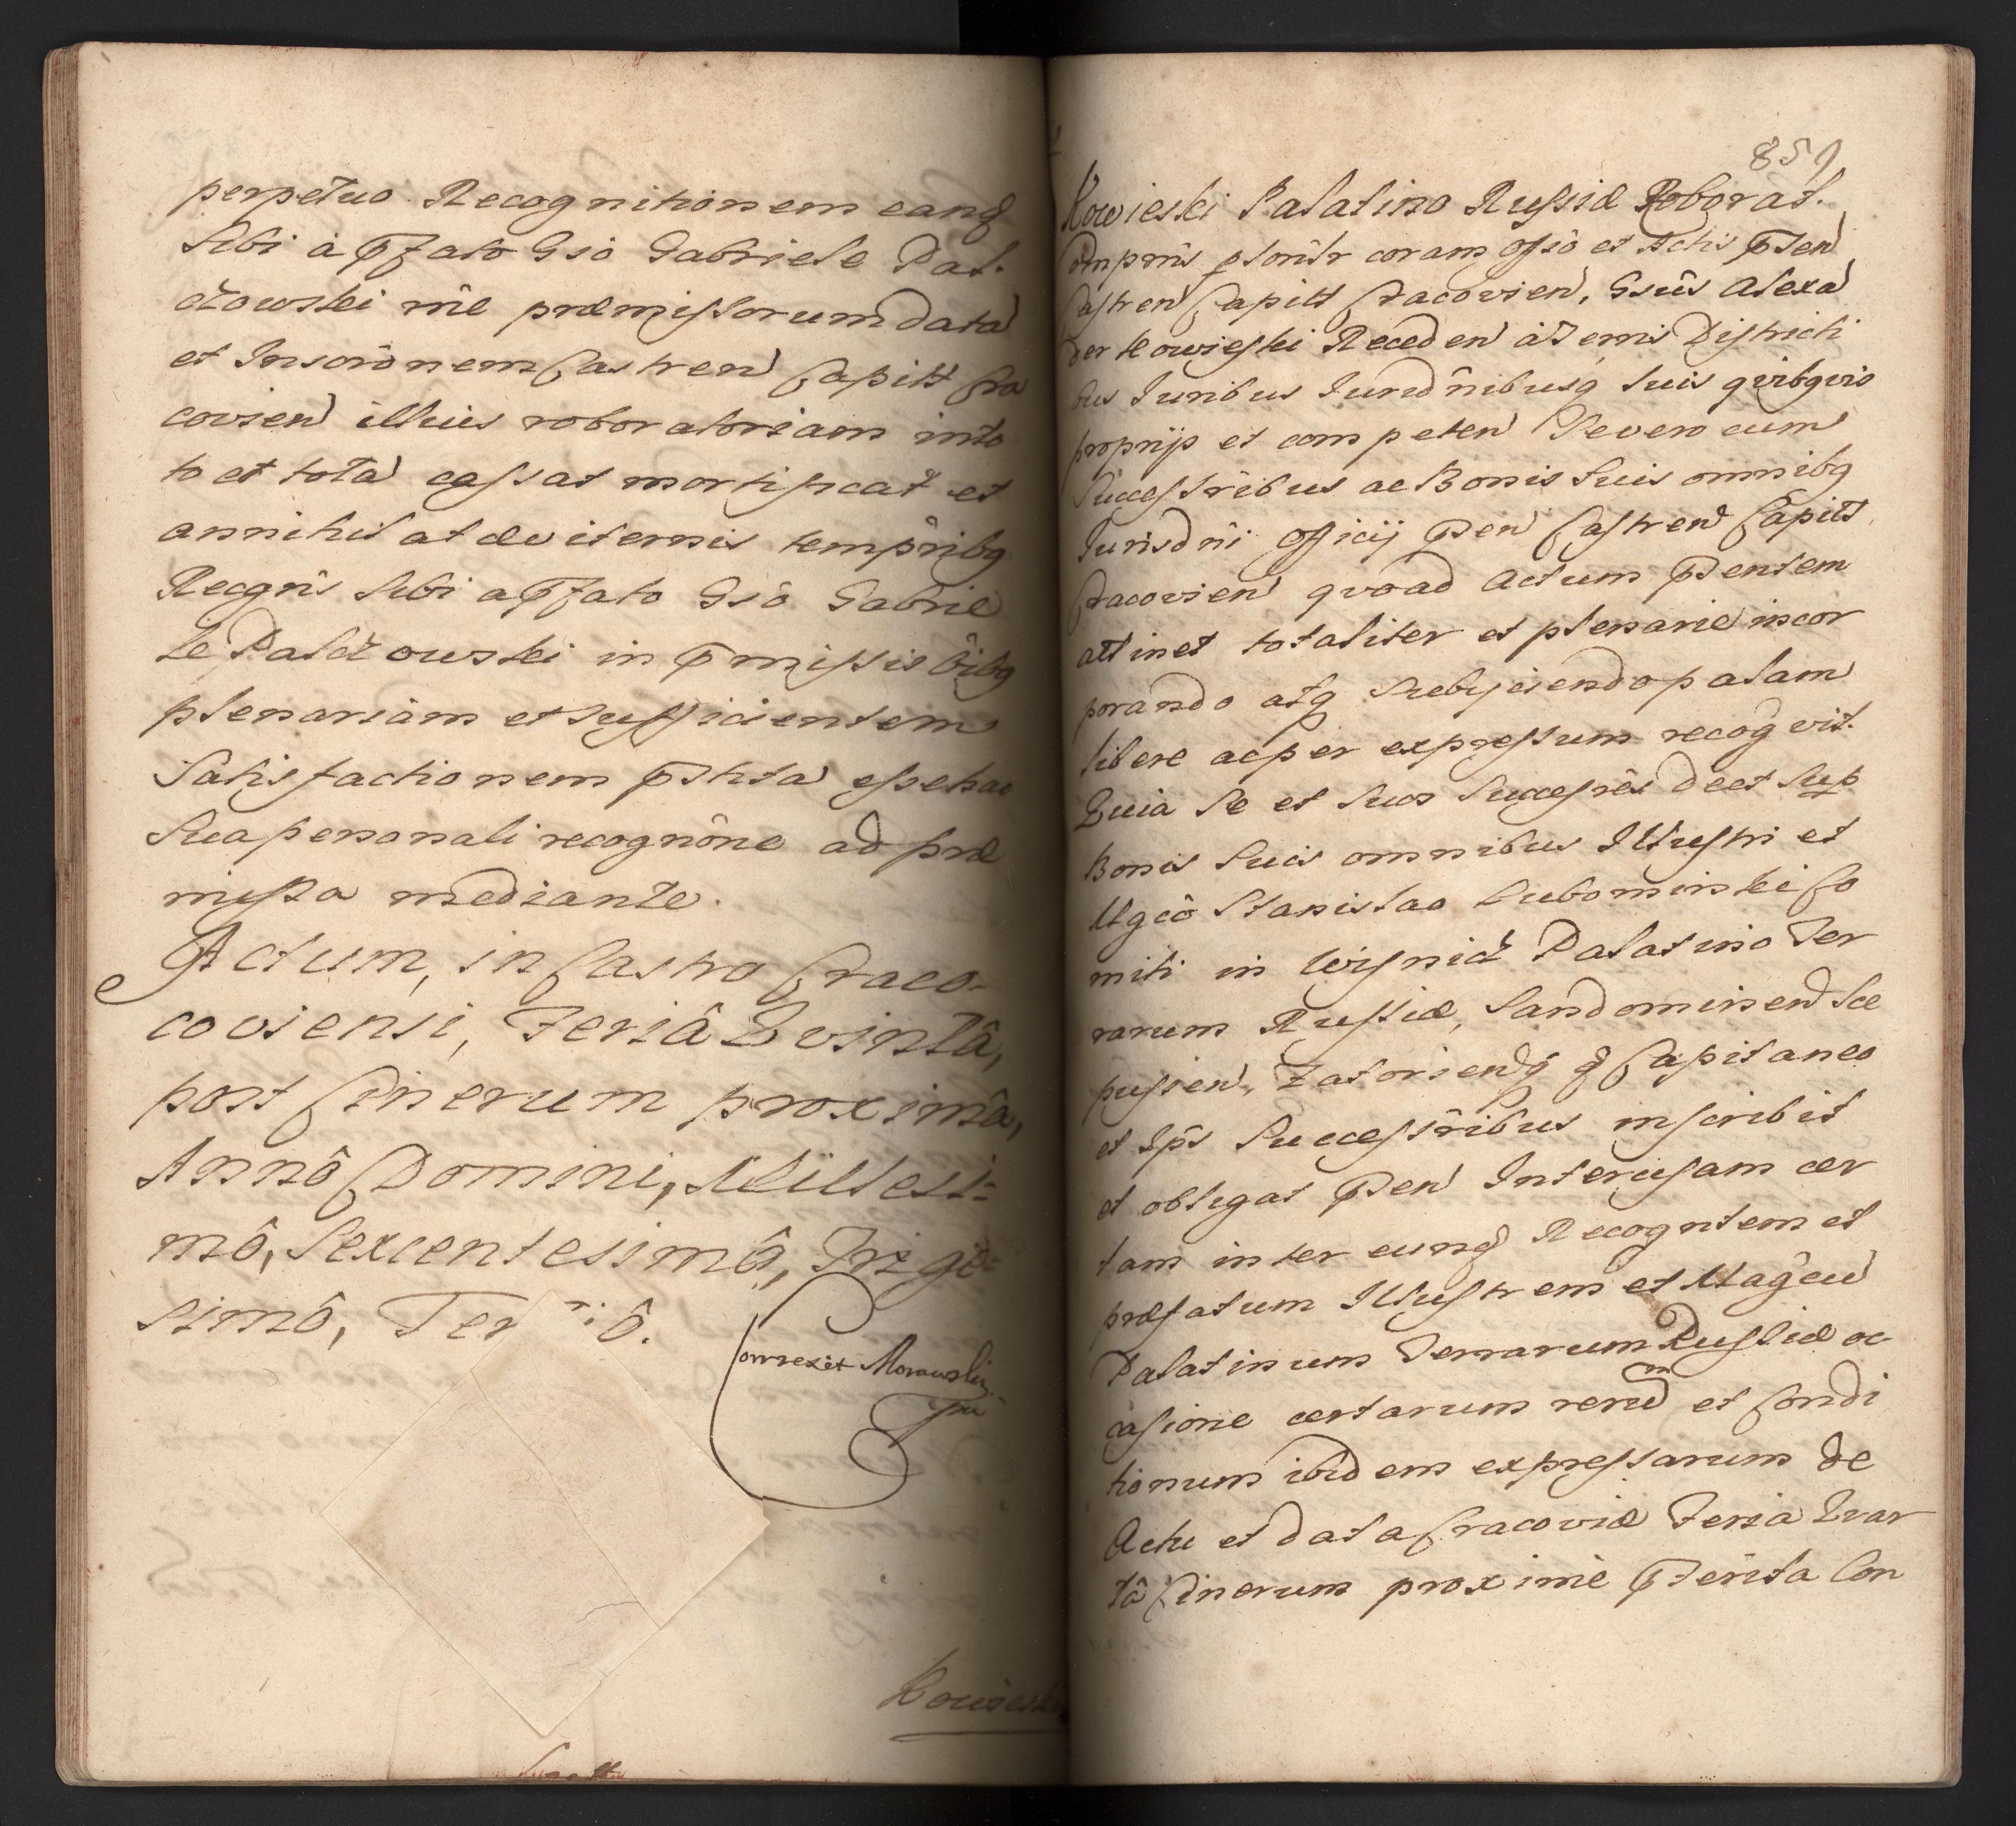 perpetuo Recognitionem eandq
Sibi à Pfato Gsó Gabriele Pal-
czowski rñe præmissorum data
et Inscrõnem Castren Capitt Cra
covien illius roboratoriam in to
to et tota cassat mortificat et
annihilat æviternis tempribq
Recogñs Sibi a Pfato Gsô Gabrie
le Palczowski in Pmissis õibq
plenariam et sufficientem
Satisfactionem Pstita esse hac
Sua personali recognône ad præ
missa mediante.
Actum, in Castro Craco-
coviensi, Feriâ Qvintâ,
post Cinerum proximâ,
Annô Domini, Millesi-
mô, Sexcentesimô, Trige-
simô, Ter  iô.
Correxit Morawski
Kowieski
859
Kowieski Palatino Russiæ Roborat.
Comparñs psonlr coram Offô et Actis Psen
Castren Capitt Cracovien, Gsûs Alexa
der Kowieski Receden à Terris Districti
bus Iuribus Iurisdñibusq suis qvibqvis
proprijs et competen Se vero cum
Successribus ac Bonis Suis omnibq
Iurisdñi Officij Psen Castren Capitt
Cracovien qvoad Actum Psentem
attinet totaliter et plenarie incor
porando atq Subijciendo palam
libere ac per expressum recogvit.
Quia Se et Suos Successrês de et Sup
Bonis Suis omnibus Illustri et
Mgcô Stanislao Lubomirski Co
miti in Wisnicz Palatino Ter
rarum Russiæ, Sandomirien Sce
pusien, Zatorienq q Capitaneo
et Ips Successribus inscribit
et obligat Psen Intercisam cer
tam inter eundq Recogntem et
præfatum Illustrem et Magcu
Palatinum Terrarum Russiæ oc
casione certarum reru et Condi
tionum ibidem expressarum de
Actu et data Cracoviæ Feria Qvar
tâ Cinerum proxime Pterita Con